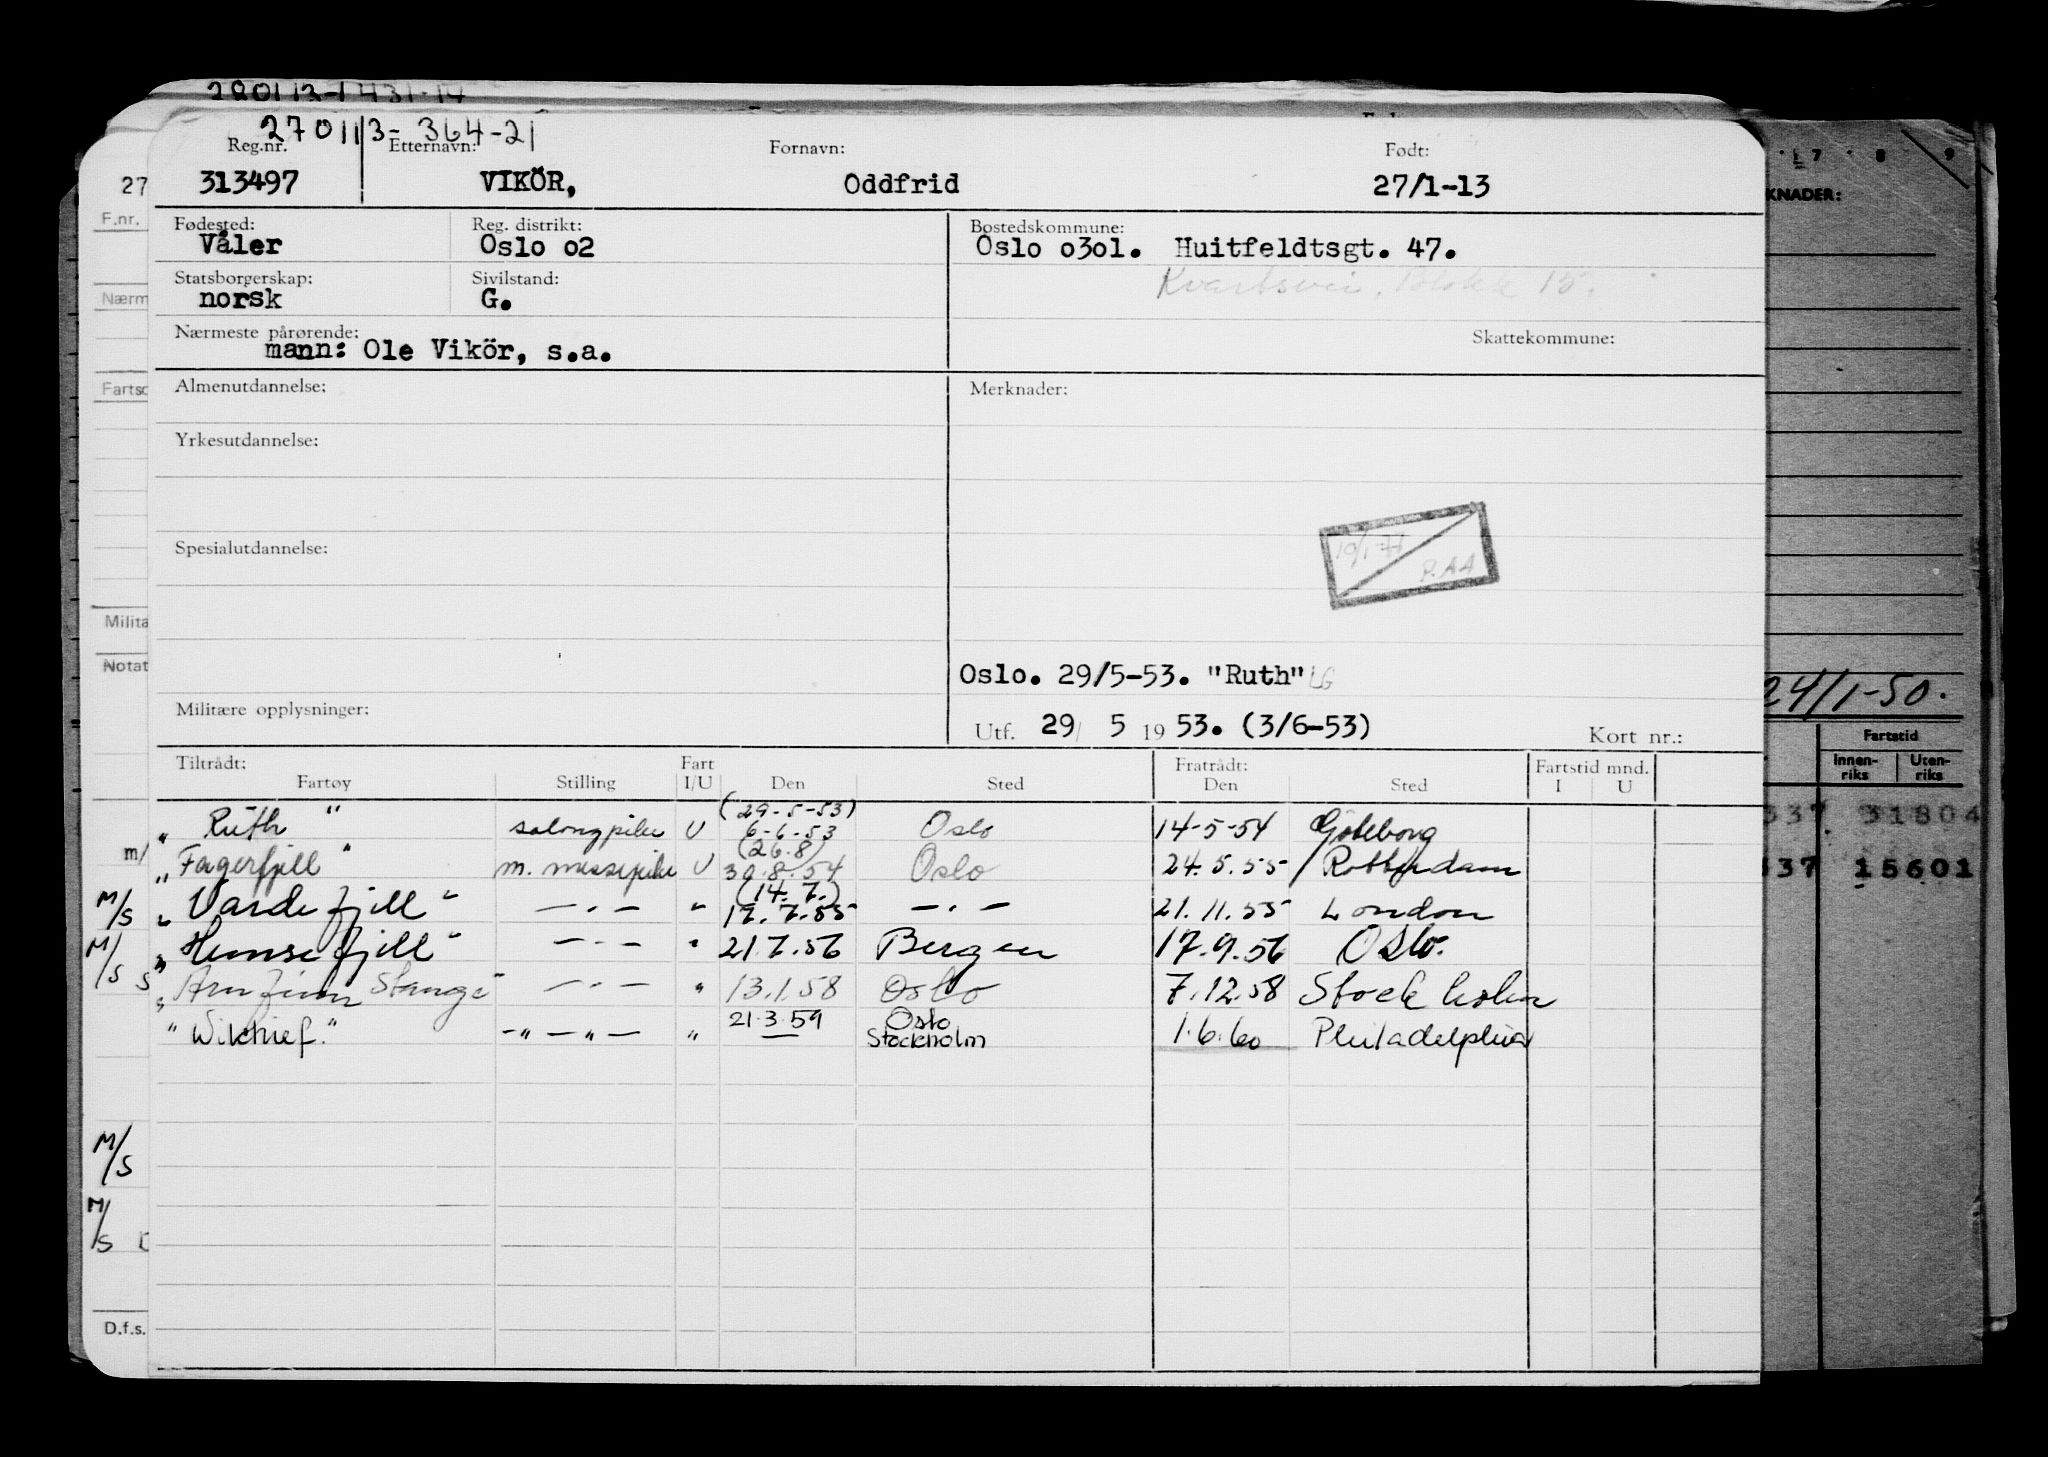 280113-1431-14
270113-364-21
Reg.nr. Etternavn: Fornavn: Født:
313497 VIKÖR, Oddfrid 27/1-13
Fødested: Reg. distrikt: Bostedskommune:
Våler Oslo o2 Oslo o3ol. Huitfeldtsgt. 47.
Statsborgerskap: Sivilstand:
norsk G. Kvartsvei. Blokk 15.
Nærmeste pårørende: Skattekommune:
mann: Ole Vikör, s.a.
Almenutdannelse: Merknader:
Yrkesutdannelse:
Spesialutdannelse:
P.AA
Oslo. 29/5-53. "Ruth" LG
Militære opplysninger:
Utf. 29/ 5 1953. (3/6-53) Kort nr.:
Tiltrådt: Fart Fratrådt: Fartstid mnd.
Fartøy Stilling I/U Den Sted Den Sted I U
(29-5-53)
" Ruth " salongpike U 6-6-53 Oslo 14-5-54 Göteborg
(26.8)
" Fagerfjell " m. messepike U 30.8.54 Oslo 24.5.55 Rotterdam
(14.7.)
" Vardefjell " — . — " 17.7.55 — . — 21.11.55 London
" Hemsefjell " — . — " 21.7.56 Bergen 17.9.56 Oslo.
" Arnfinn Stange " — . — " 13.1.58 Oslo 7.12.58 Stockholm
" Wilchief." — " — " — " 21.3.59 Oslo Stockholm 1.6.60 Philadelphia
27
F.nr.
Nærm
Fartsc
Milita
Notat
m/
M/S
M/S S
M/S
M/S
D.f.s.
17 8 9
KNADER:
24/1-50.
Fartstid
Innen-riks Uten-riks
337 31804
337 15601